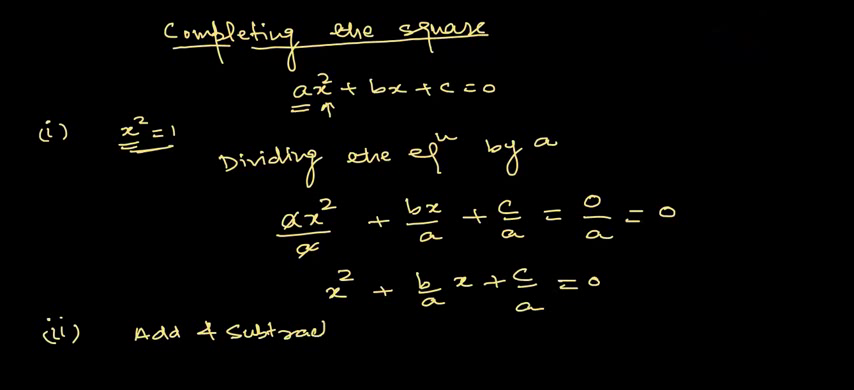 Completing the square
ax² + bx + c = 0
(i) x² = 1
Dividing the eqⁿ by a
ax²/a + bx/a + c/a = 0/a = 0
x² + b/a x + c/a = 0
(ii) Add & Subtract